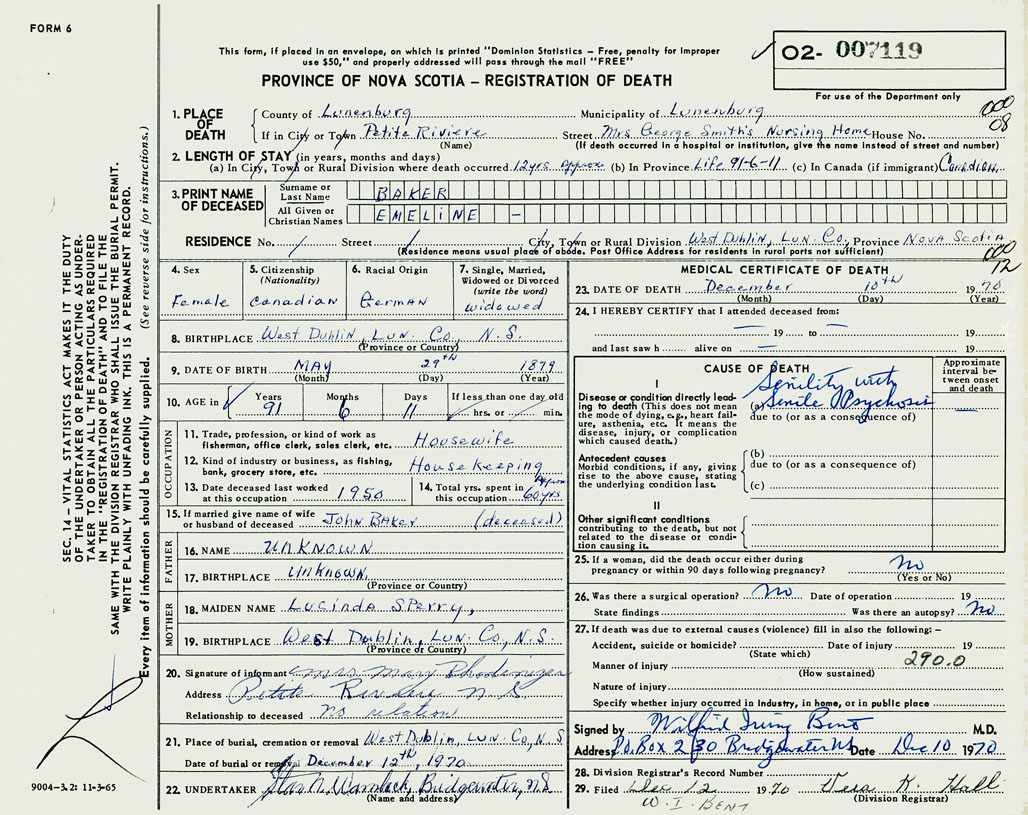 FORM 6
This form, if placed in an envelope, on which is printed "Dominion Statistics – Free, penalty for improper
use $50," and properly addressed will pass through the mail "FREE"
PROVINCE OF NOVA SCOTIA – REGISTRATION OF DEATH
02- 007119
For use of the Department only
000
08
1. PLACE OF DEATH
County of Lunenburg Municipality of Lunenburg
If in City or Town Petite Riviere Street Mrs George Smith's Nursing Home House No.
(Name) (If death occurred in a hospital or institution, give the name instead of street and number)
2. LENGTH OF STAY (in years, months and days)
(a) In City, Town or Rural Division where death occurred 12yrs approx (b) In Province Life 91-6-11 (c) In Canada (if immigrant) Canadian
3. PRINT NAME OF DECEASED
Surname or Last Name BAKER
All Given or Christian Names EMELINE –
RESIDENCE No. / Street / City, Town or Rural Division West Dublin, Lun. Co., Province Nova Scotia
(Residence means usual place of abode. Post Office Address for residents in rural parts not sufficient)
000
12
4. Sex
Female
5. Citizenship
(Nationality)
Canadian
6. Racial Origin
German
7. Single, Married,
Widowed or Divorced
(write the word)
widowed
8. BIRTHPLACE West Dublin, Lun. Co, N.S.
(Province or Country)
9. DATE OF BIRTH MAY 29th 1879
(Month) (Day) (Year)
10. AGE in Years 91 Months 6 Days 11 If less than one day old
hrs. or min.
OCCUPATION
11. Trade, profession, or kind of work as
fisherman, office clerk, sales clerk, etc. Housewife
12. Kind of industry or business, as fishing,
bank, grocery store, etc. Housekeeping
13. Date deceased last worked
at this occupation 1950
14. Total yrs. spent in
this occupation Approx 60yrs
15. If married give name of wife
or husband of deceased John Baker (deceased)
FATHER
16. NAME Unknown
17. BIRTHPLACE Unknown
(Province or Country)
MOTHER
18. MAIDEN NAME Lucinda Sperry,
19. BIRTHPLACE West Dublin, Lun. Co., N.S.
(Province or Country)
20. Signature of informant Mrs Mary Rhodenizer
Address Petite Riviere N S
Relationship to deceased No relation
21. Place of burial, cremation or removal West Dublin, Lun. Co., N.S
Date of burial or removal December 12th, 1970
22. UNDERTAKER Bridgewater, N.S
(Name and address)
MEDICAL CERTIFICATE OF DEATH
23. DATE OF DEATH December 10th 1970
(Month) (Day) (Year)
24. I HEREBY CERTIFY that I attended deceased from:
— 19 to — 19
and last saw h alive on — 19
CAUSE OF DEATH
Approximate
interval between
onset
and death
I
Disease or condition directly lead-
ing to death (This does not mean
the mode of dying, e.g., heart fail-
ure, asthenia, etc. It means the
disease, injury, or complication
which caused death.)
Senility with
(a) Senile Psychosis —
due to (or as a consequence of)
Antecedent causes
Morbid conditions, if any, giving
rise to the above cause, stating
the underlying condition last.
(b)
due to (or as a consequence of)
(c)
II
Other significant conditions
contributing to the death, but not
related to the disease or condi-
tion causing it.
25. If a woman, did the death occur either during
pregnancy or within 90 days following pregnancy? No
(Yes or No)
26. Was there a surgical operation? No Date of operation 19
State findings Was there an autopsy? No
27. If death was due to external causes (violence) fill in also the following: –
Accident, suicide or homicide? Date of injury 19
(State which)
290.0
Manner of injury
(How sustained)
Nature of injury
Specify whether injury occurred in industry, in home, or in public place
Signed by Wilfrid Irving Bent M.D.
Address P.O. Box 230 Bridgewater NS Date Dec 10 1970
28. Division Registrar's Record Number
29. Filed Dec 12 1970 Vera K. Hall
(Division Registrar)
W. I. BENT
SEC. 14 – VITAL STATISTICS ACT MAKES IT THE DUTY
OF THE UNDERTAKER OR PERSON ACTING AS UNDER-
TAKER TO OBTAIN ALL THE PARTICULARS REQUIRED
IN THE "REGISTRATION OF DEATH" AND TO FILE THE
SAME WITH THE DIVISION REGISTRAR WHO SHALL ISSUE THE BURIAL PERMIT.
WRITE PLAINLY WITH UNFADING INK. THIS IS A PERMANENT RECORD.
Every item of information should be carefully supplied. (See reverse side for instructions.)
9004–3.2: 11-3-65